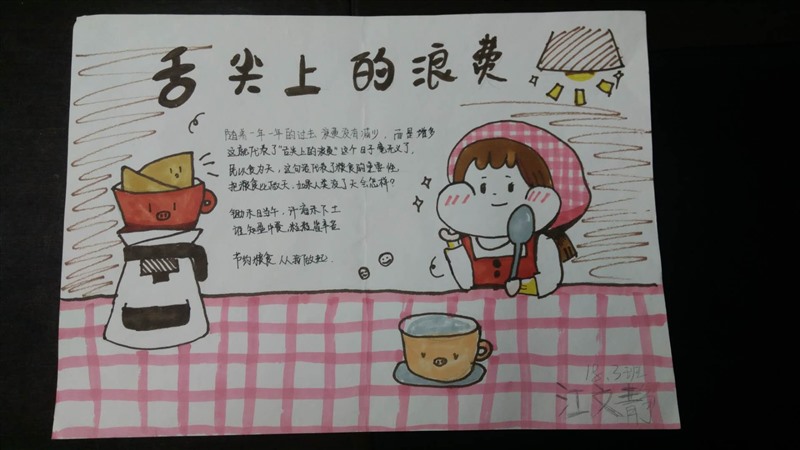 舌尖上的浪费
随着一年一年的过去 浪费没有减少，而是增多
这就代表了"舌尖上的浪费"这个日子毫无义了，
民以食为天，这句话代表了粮食的重要性
把粮食比做天，如果人类没了天会怎样？
锄禾日当午，汗滴禾下土
谁知盘中餐，粒粒皆辛苦
节约粮食 从我做起.
江文静